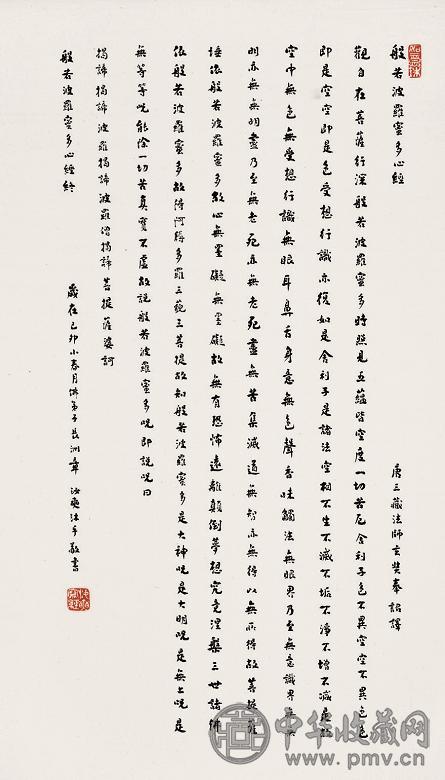 般若波羅蜜多心經
唐三藏法師玄奘奉詔譯
觀自在菩薩行深般若波羅蜜多時照見五蘊皆空度一切苦厄舍利子色不異空空不異色色
即是空空即是色受想行識亦復如是舍利子是諸法空相不生不滅不垢不淨不增不減是故
空中無色無受想行識無眼耳鼻舌身意無色聲香味觸法無眼界乃至無意識界無無
明亦無無明盡乃至無老死亦無老死盡無苦集滅道無智亦無得以無所得故菩提薩
埵依般若波羅蜜多故心無罣礙無罣礙故無有恐怖遠離顛倒夢想究竟涅槃三世諸佛
依般若波羅蜜多故得阿耨多羅三藐三菩提故知般若波羅蜜多是大神咒是大明咒是無上咒是
無等等咒能除一切苦真實不虛故說般若波羅蜜多咒即說咒曰
揭諦揭諦波羅揭諦波羅僧揭諦菩提薩婆訶
般若波羅蜜多心經終
歲在己卯小春月佛弟子長洲章汝奭沐手敬書
中华收藏网
www.pmv.cn